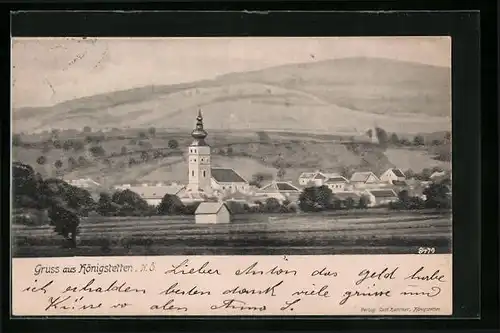 8479
Gruss aus Königstetten. N.Ö. Lieber Anton das geld habe
ich erhalten besten dank viele grüsse und
Küsse von allen Anna S.
Verlag Gust Kammer, Königstetten